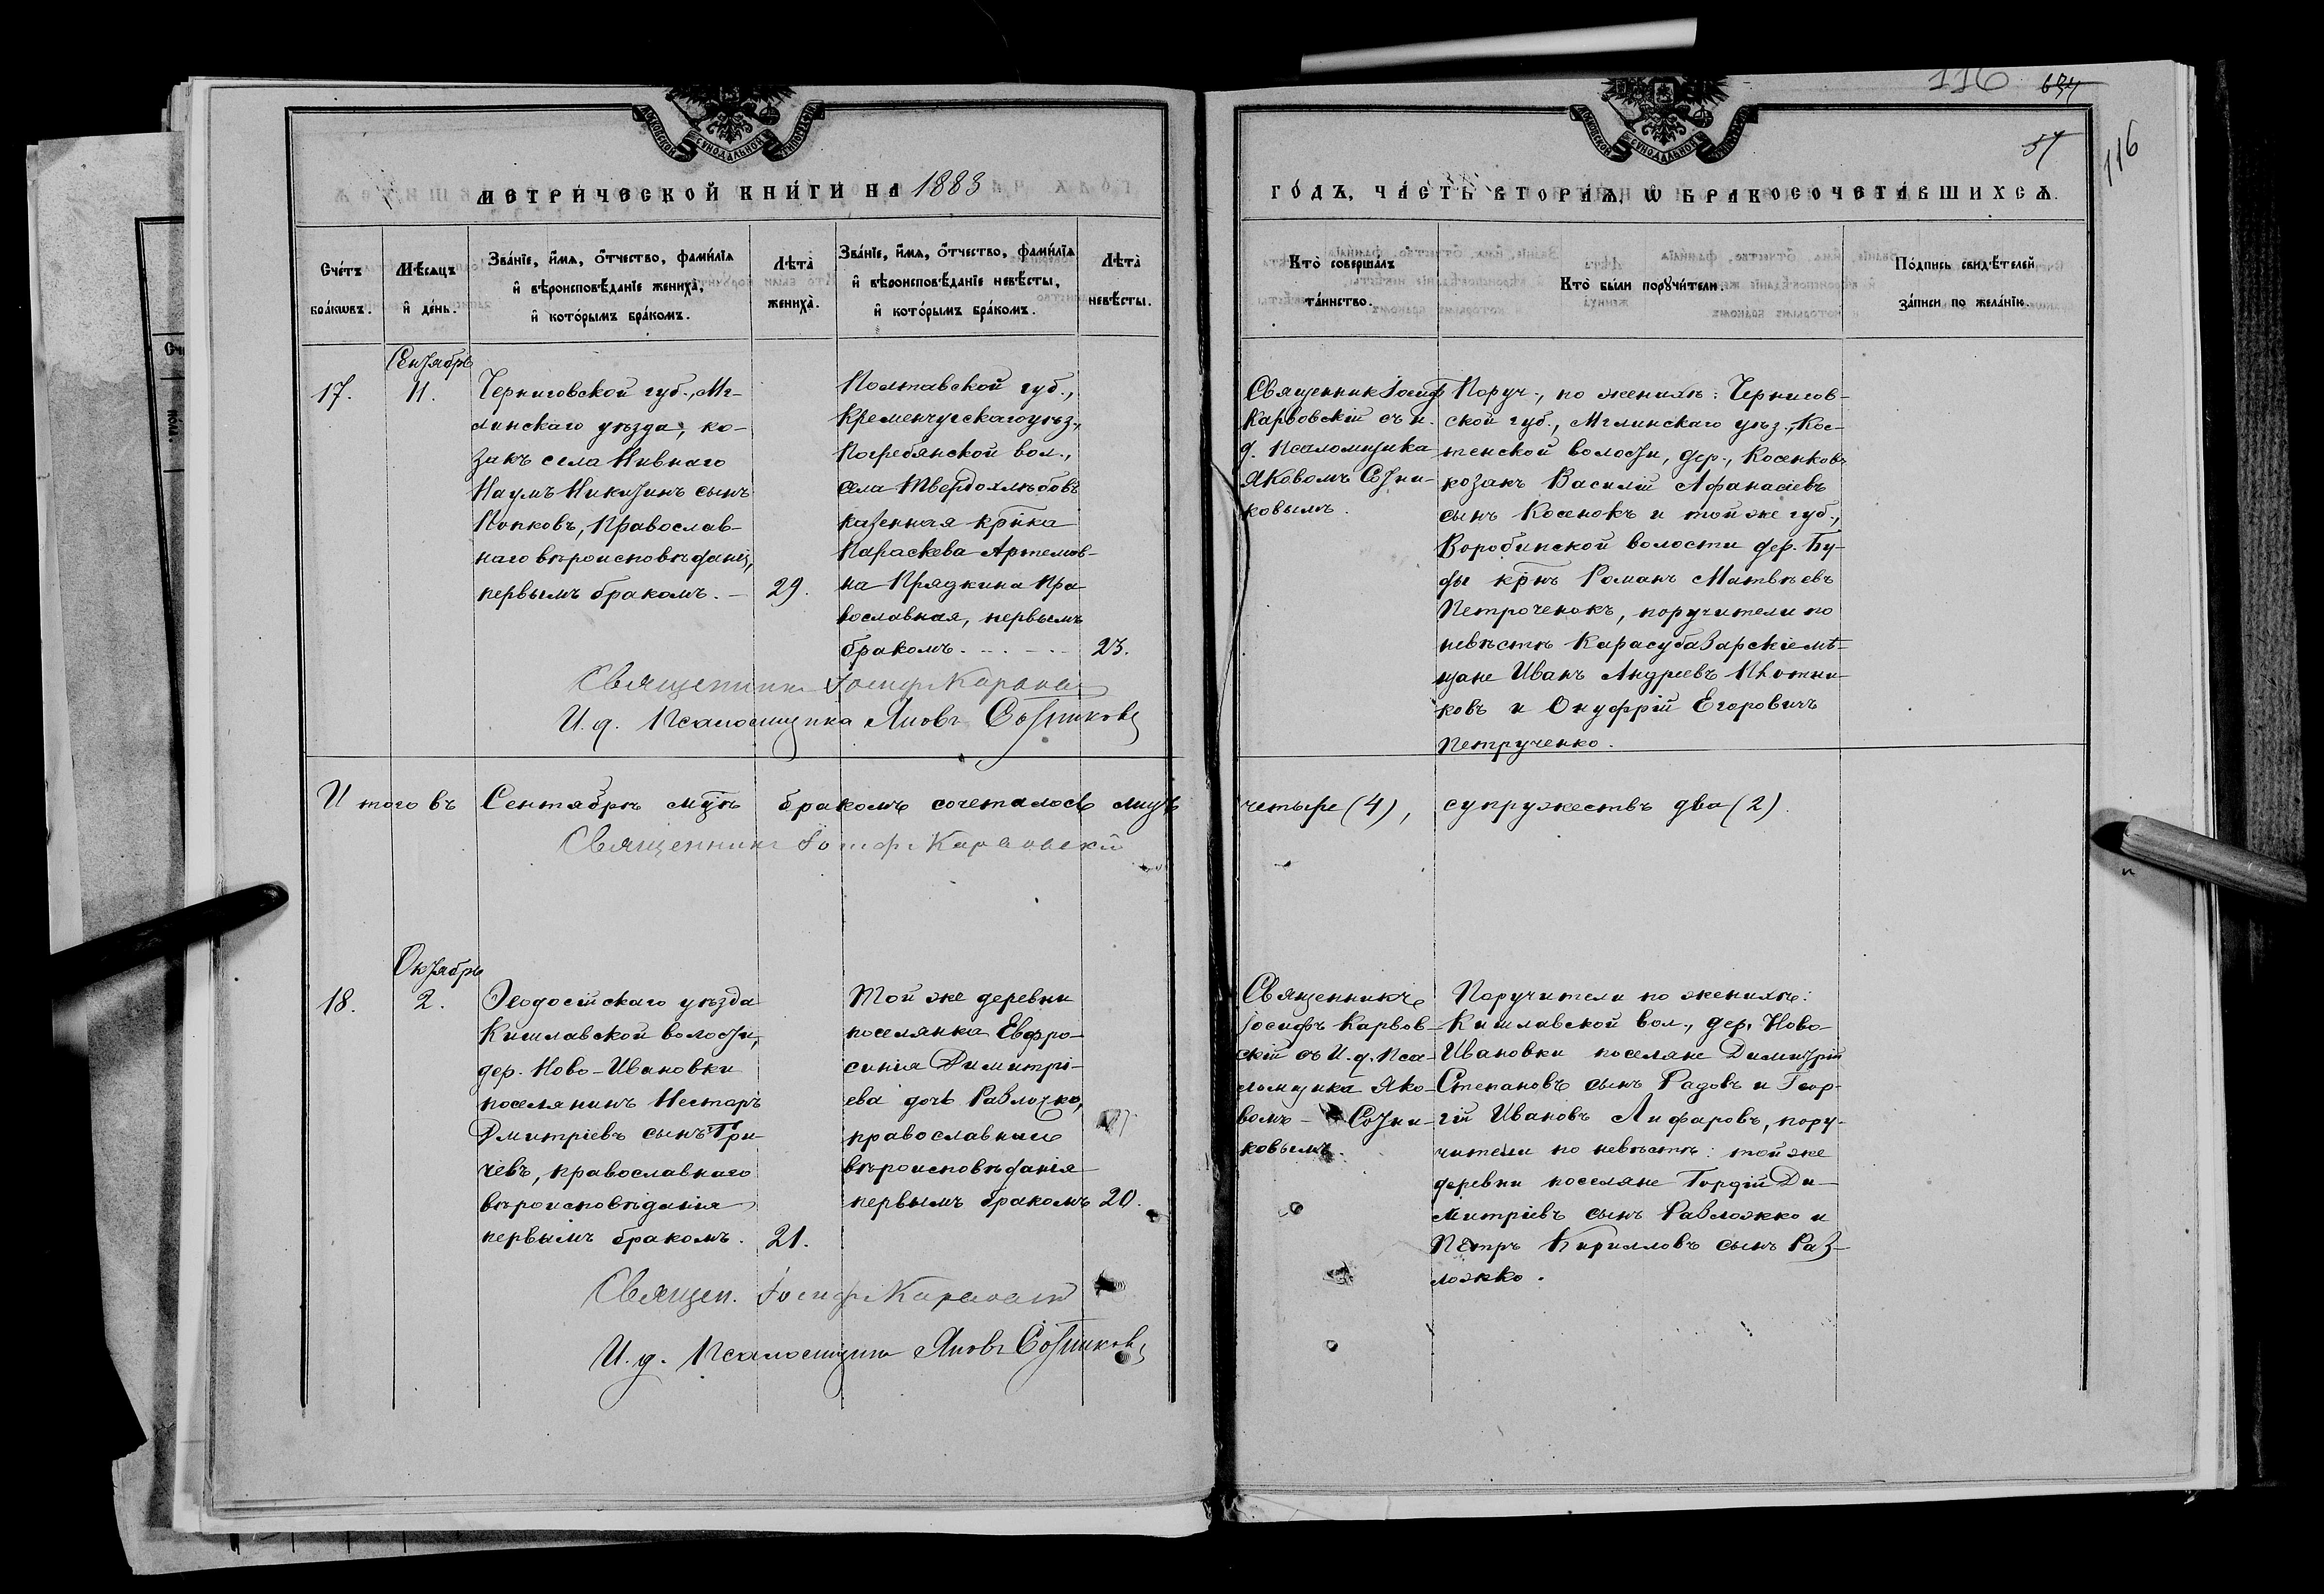 116
51
116
МЕТРИЧЕСКОЙ КНИГИ НА 1883
ГОДЪ, ЧАСТЬ ВТОРАЯ, Ѡ БРАКОСОЧЕТАВШИХСЯ.
Счетъ браковъ.
Мѣсяцъ и день.
Званіе, имя, отчество, фамилія
и вѣроисповѣданіе жениха,
и которымъ бракомъ.
Лѣта
жениха.
Званіе, имя, отчество, фамилія
и вѣроисповѣданіе невѣсты,
и которымъ бракомъ.
Лѣта
невѣсты.
Кто совершалъ
таинство.
Кто были поручители.
Подпись свидѣтелей
записи по желанію.
17.
Сентябрь
11.
Черниговской губ., Мг-
линскаго уѣзда, ко-
закъ села Нивнаго
Наумъ Никитинъ сынъ
Попковъ, Православ-
наго вѣроисповѣданія,
первымъ бракомъ. —
29.
Полтавской губ.,
Кременчугскаго уѣз.,
Погребянской вол.,
села Твердохлѣбовъ
казенная кр-нка
Параскева Артемов-
на Прядкина Пра
вославная, первымъ
бракомъ.
23.
Священникъ Іосифъ
Карвовскій съ и.
д. Псаломщика
Яковомъ Сотни-
ковымъ.
Поруч., по женихѣ: Чернигов-
ской губ., Мглинскаго уѣз., Кос-
тенской волости, дер., Косенковъ
козакъ Василій Афанасіевъ
сынъ Косенокъ и той же губ.,
Воробинской волости дер. Бу-
ды кр-нъ Романъ Матвѣевъ
Петроченокъ, поручители по
невѣстѣ Карасубазарскіе мѣ-
щане Иванъ Андреевъ Плотни-
ковъ и Онуфрій Егоровичъ
Петрученко.
Священникъ Іосифъ
И. д. Псаломщика Яковъ Сотниковъ
Итого въ Сентябрѣ м-цѣ бракомъ сочеталось лицъ четыре (4), супружествъ два (2).
Священникъ Іосифъ Карвовскій
18.
Октябрь
2.
Ѳеодосійскаго уѣзда
Кишлавской волости,
дер. Ново-Ивановки
поселянинъ Несторъ
Дмитріевъ сынъ Гри-
чевъ, православнаго
вѣроисповѣданія
первымъ бракомъ.
21.
Той же деревни
поселянка Евфро-
синія Димитрі-
ева дочь Разложко,
православнаго
вѣроисповѣданія
первымъ бракомъ
20.
Священникъ
Іосифъ Карвов-
скій съ И. д. Пса-
ломщика Яко-
вомъ — Сотни-
ковымъ.
Поручители по женихѣ:
Кишлавской вол., дер. Ново-
Ивановки поселяне Димитрій
Степановъ сынъ Радовъ и Геор-
гій Ивановъ Лифаровъ, пору-
чители по невѣстѣ: той же
деревни поселяне Гордій Ди-
митріевъ сынъ Разложко и
Петръ Кирилловъ сынъ Раз-
ложко.
Священ. Іосифъ
И. д. Псаломщика Яковъ Сотниковъ